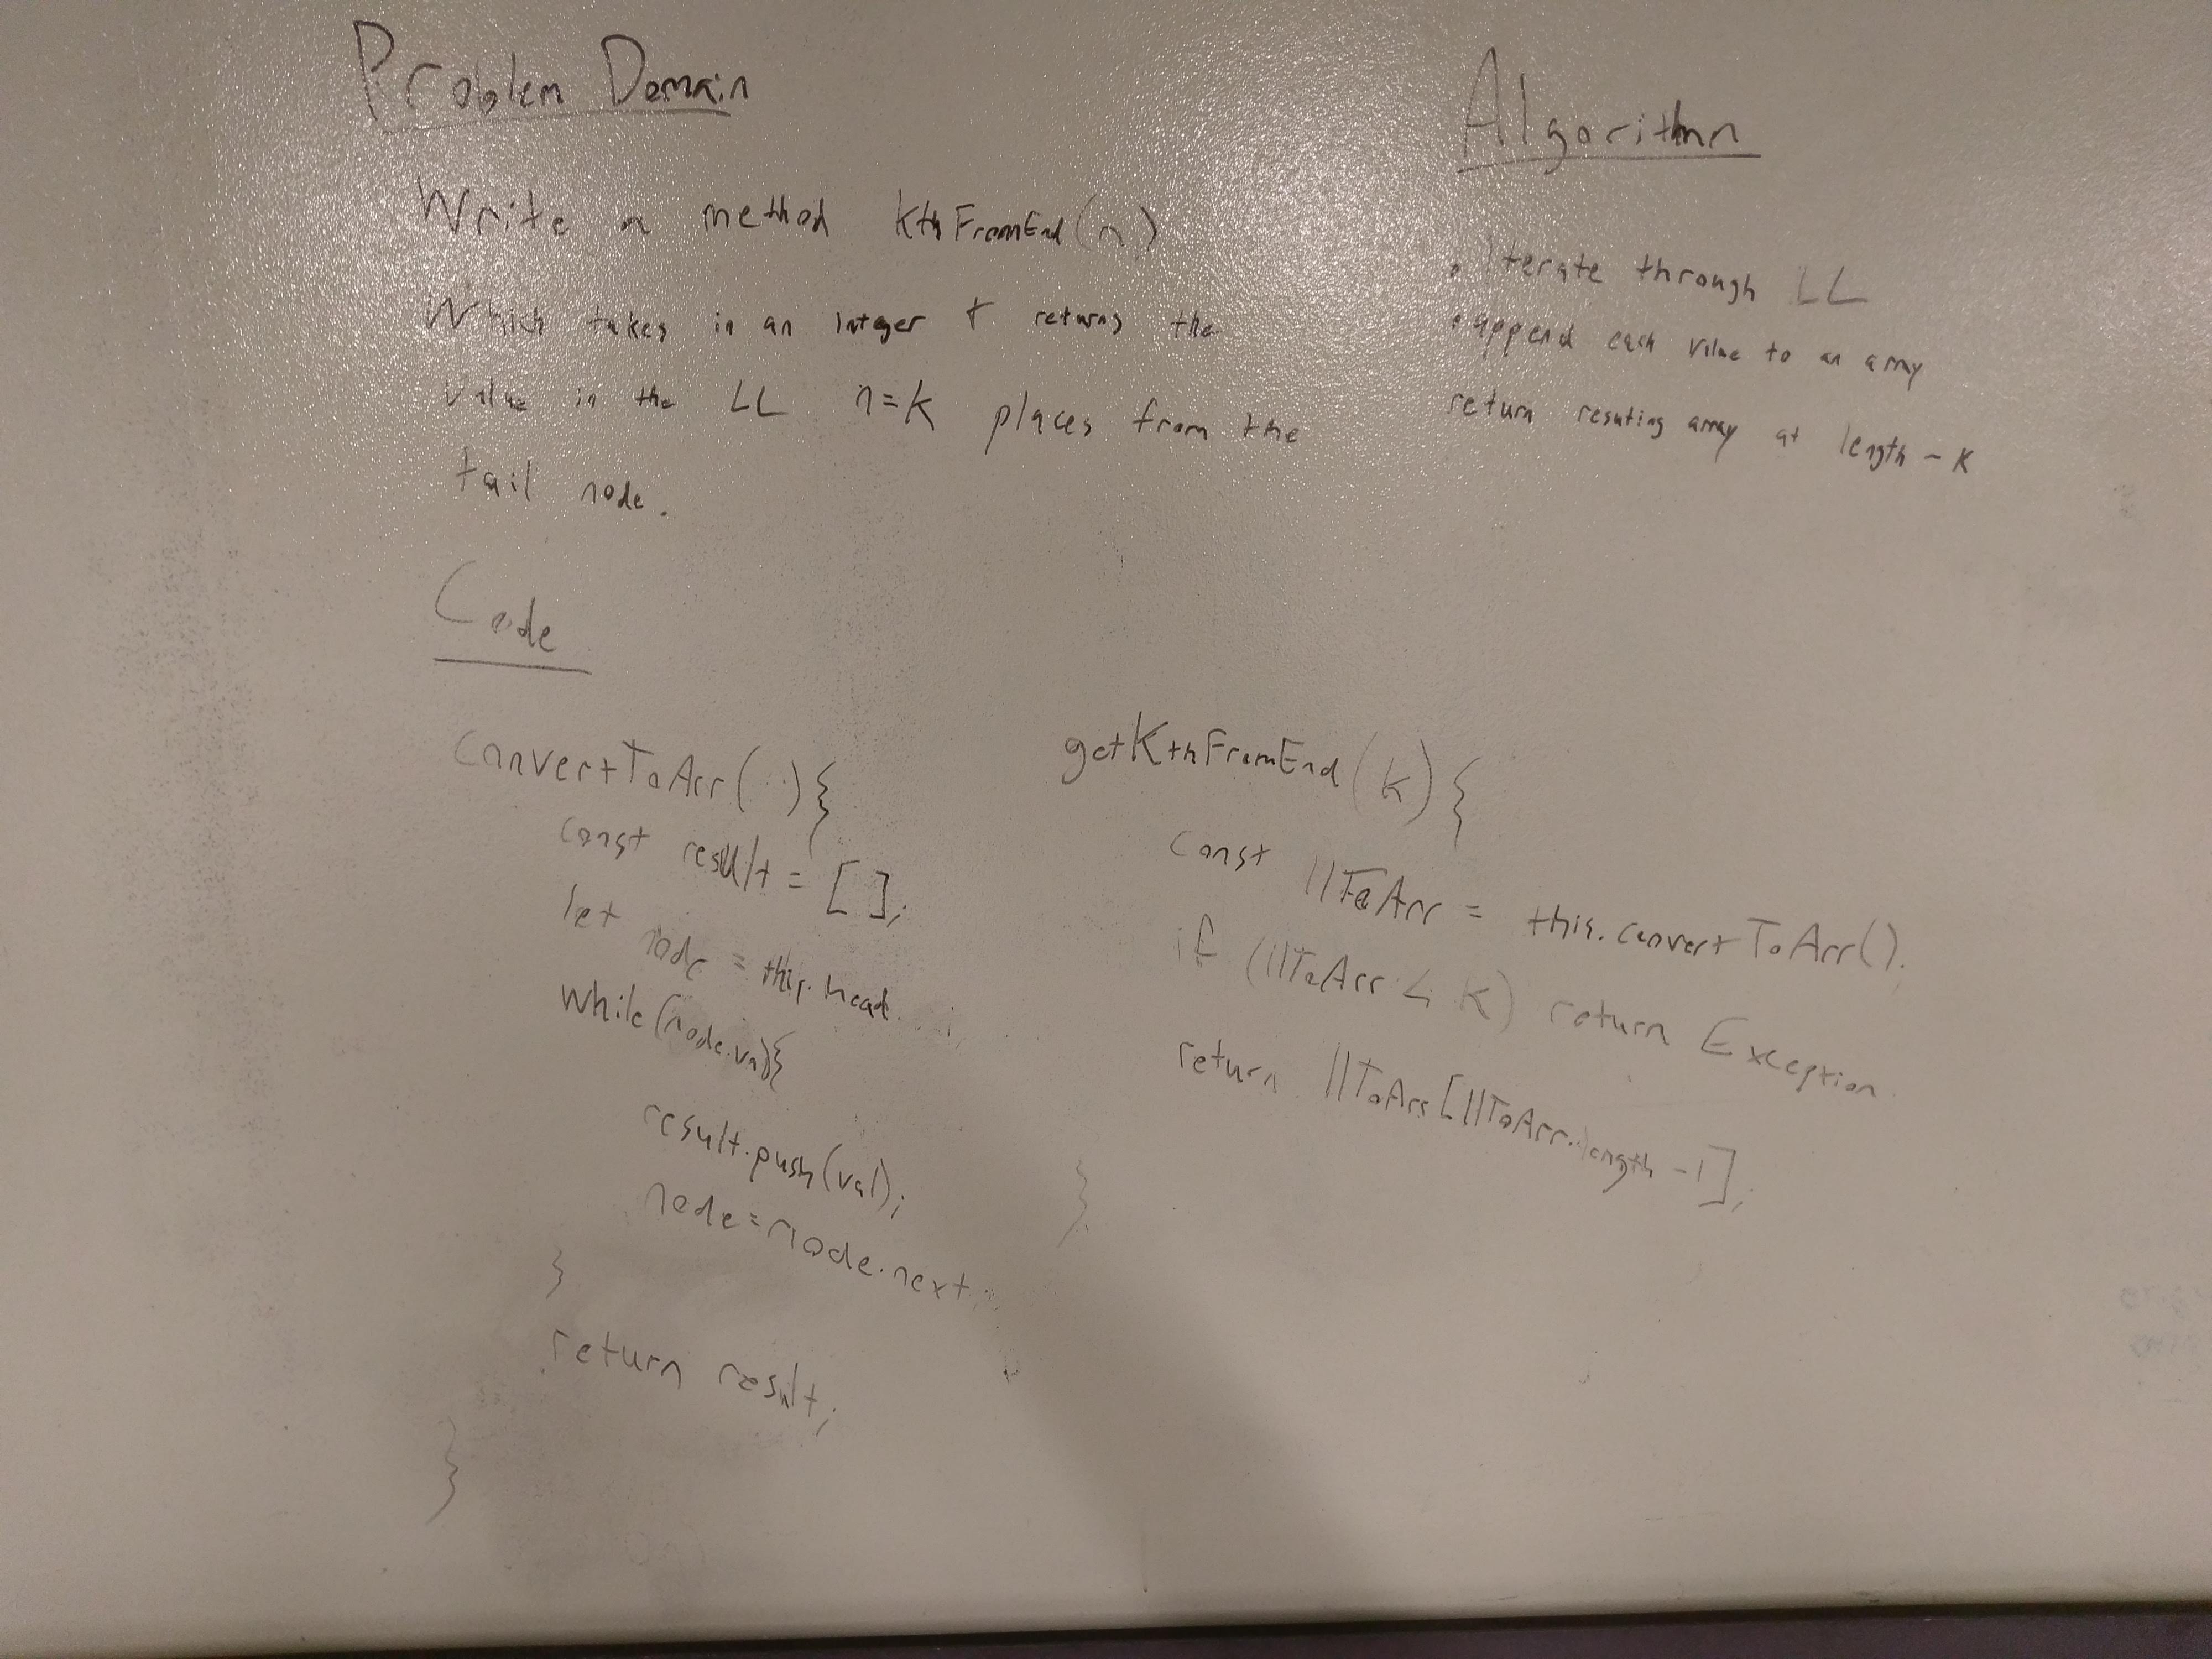 Problem Domain
Write a method kthFromEnd(n)
Which takes in an integer + returns the
value in the LL n=k places from the
tail node.
Algorithm
• Iterate through LL
• append each value to an array
return resuting array at length - k
Code
convertToArr( ){
const result = [ ];
let node = this.head
while(node.val){
result.push(val);
node=node.next;
}
return result;
}
getKthFromEnd(k){
const llToArr = this.convertToArr().
if (llToArr < k) return Exception
return llToArr[llToArr.length -1];
}